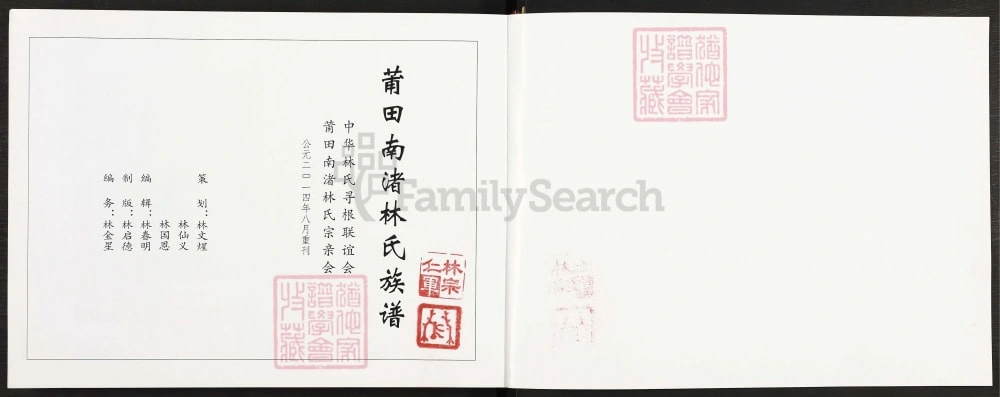 莆田南渚林氏族谱
中华林氏寻根联谊会
莆田南渚林氏宗亲会
公元二〇一四年八月重刊
策划：林文煋
林仙义
林国恩
编辑：林春明
制版：林启德
编务：林金星
林宗
仁軍
猶他家
譜學會
收藏
猶他家
譜學會
收藏
FamilySearch